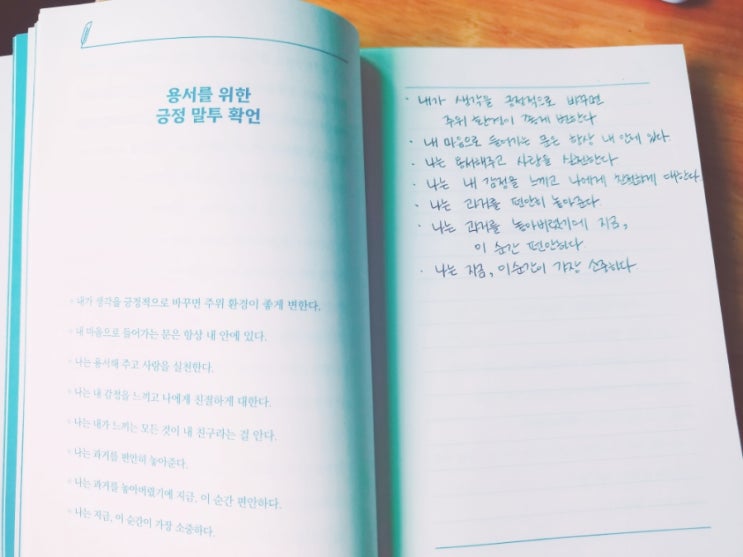 용서를 위한
긍정 말투 확언
• 내가 생각을 긍정적으로 바꾸면 주위 환경이 좋게 변한다.
• 내 마음으로 들어가는 문은 항상 내 안에 있다.
• 나는 용서해 주고 사랑을 실천한다.
• 나는 내 감정을 느끼고 나에게 친절하게 대한다.
• 나는 내가 느끼는 모든 것이 내 친구라는 걸 안다.
• 나는 과거를 편안히 놓아준다.
• 나는 과거를 놓아버렸기에 지금, 이 순간 편안하다.
• 나는 지금, 이 순간이 가장 소중하다.
· 내가 생각을 긍정적으로 바꾸면
주위 환경이 좋게 변한다
· 내 마음으로 들어가는 문은 항상 내 안에 있다.
· 나는 용서해주고 사랑을 실천한다.
· 나는 내 감정을 느끼고 나에게 친절하게 대한다.
· 나는 과거를 편안히 놓아준다.
· 나는 과거를 놓아버렸기에 지금,
이 순간 편안하다.
· 나는 지금, 이순간이 가장 소중하다